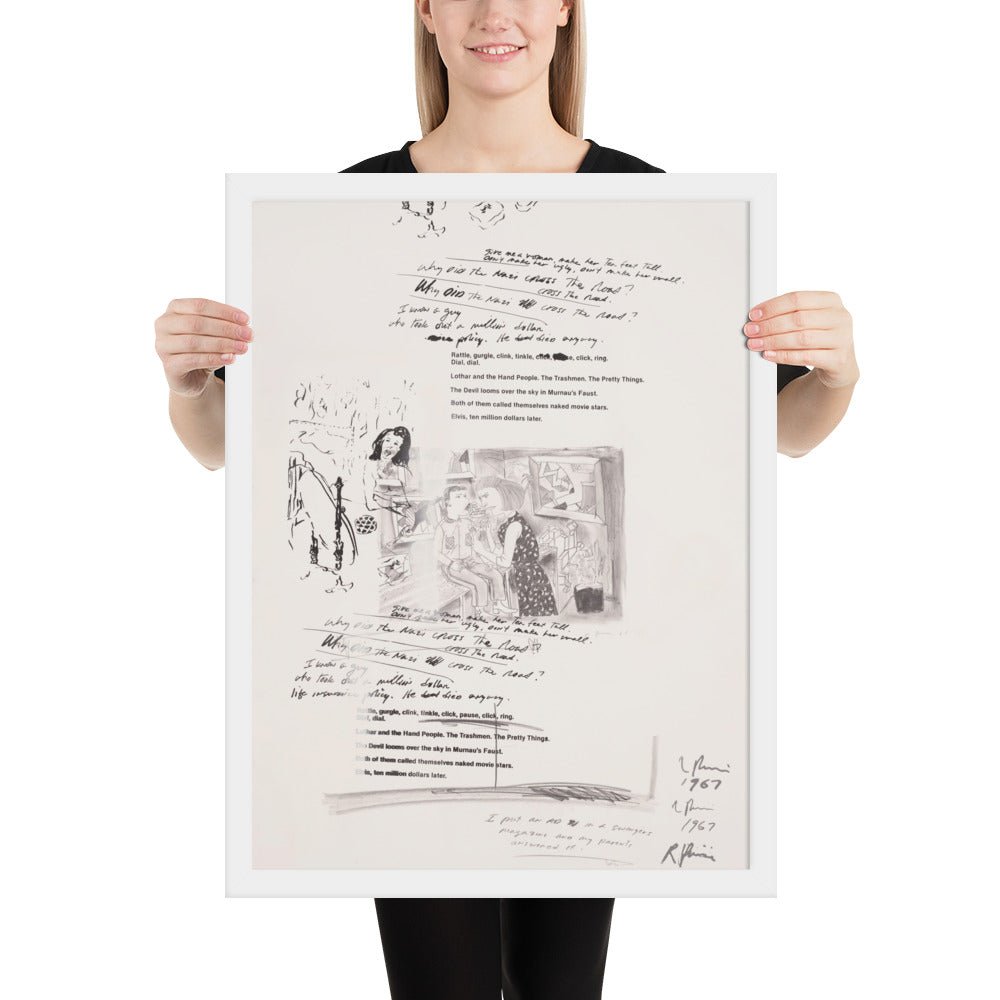 Give me a woman, make her Ten feet Tall
Don't make her ugly, don't make her small.
Why Did the Nazi CROSS The Road?
CROSS The Road.
Why DID The Nazi CROSS The Road?
I know a guy
who took out a million dollar
policy. He died anyway.
Rattle, gurgle, clink, tinkle, click, click, ring.
Dial, dial.
Lothar and the Hand People. The Trashmen. The Pretty Things.
The Devil looms over the sky in Murnau's Faust.
Both of them called themselves naked movie stars.
Elvis, ten million dollars later.
Give me a woman, make her Ten feet Tall
Don't make her ugly, don't make her small.
Why Did the Nazi CROSS The Road?
CROSS The Road.
Why DID The Nazi CROSS The Road?
I know a guy
who took out a million dollar
life insurance policy. He died anyway.
Rattle, gurgle, clink, tinkle, click, pause, click, ring.
Dial, dial.
Lothar and the Hand People. The Trashmen. The Pretty Things.
The Devil looms over the sky in Murnau's Faust.
Both of them called themselves naked movie stars.
Elvis, ten million dollars later.
1967
1967
I put an AD in a swingers
magazine and my parents
answered it!